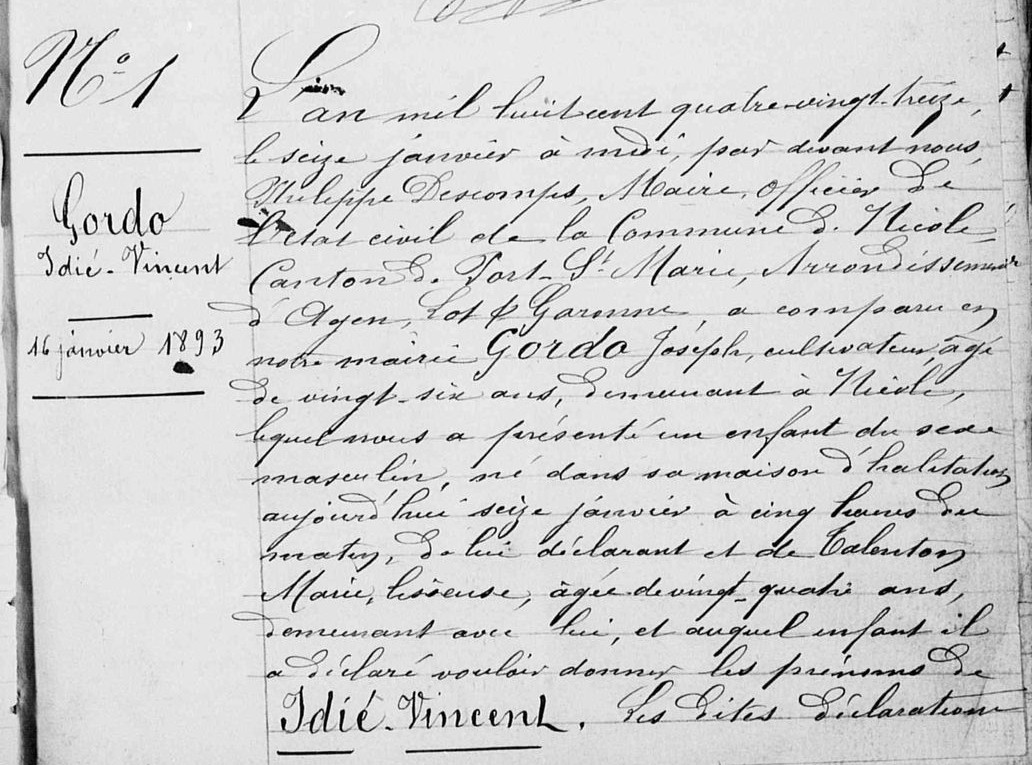 N° 1
Gordo
Idié-Vincent
16 janvier 1893
L'an mil huit cent quatre-vingt-treize,
le seize janvier à midi, par devant nous,
Philippe Descomps, Maire, officier de
l'état civil de la Commune de Nicole,
Canton de Port-Ste Marie, Arrondissement
d'Agen, Lot & Garonne, a comparu en
notre mairie Gordo Joseph, cultivateur, âgé
de vingt-six ans, demeurant à Nicole,
lequel nous a présenté un enfant du sexe
masculin, né dans sa maison d'habitation
aujourd'hui seize janvier à cinq heures du
matin, de lui déclarant et de Talenton
Marie, lisseuse, âgée de vingt-quatre ans,
demeurant avec lui, et auquel enfant il
a déclaré vouloir donner les prénoms de
Idié-Vincent. Les dites déclarations